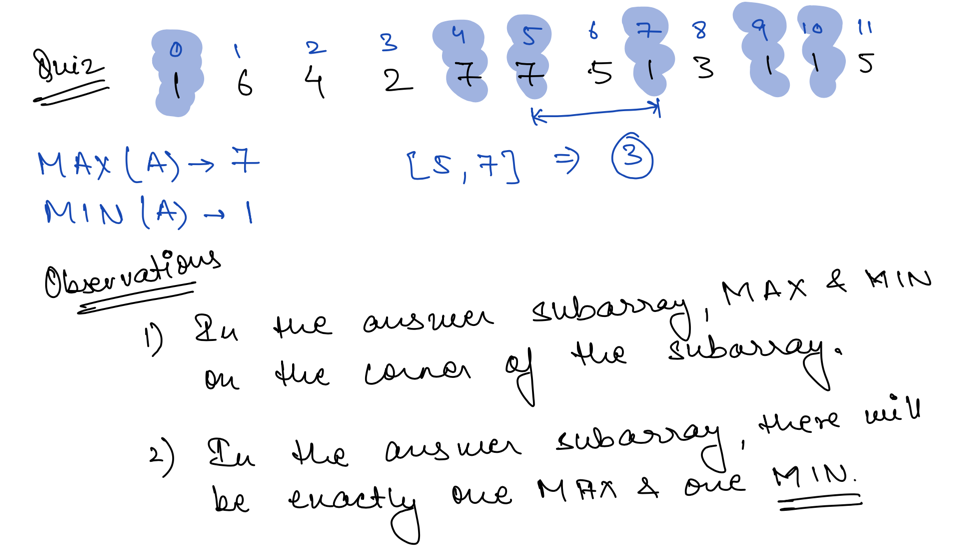 0 1 2 3 4 5 6 7 8 9 10 11
Quiz 1 6 4 2 7 7 5 1 3 1 1 5
MAX (A) → 7 [5, 7] ⇒ 3
MIN (A) → 1
Observations
1) In the answer subarray, MAX & MIN
on the corner of the subarray.
2) In the answer subarray, there will
be exactly one MAX & one MIN.